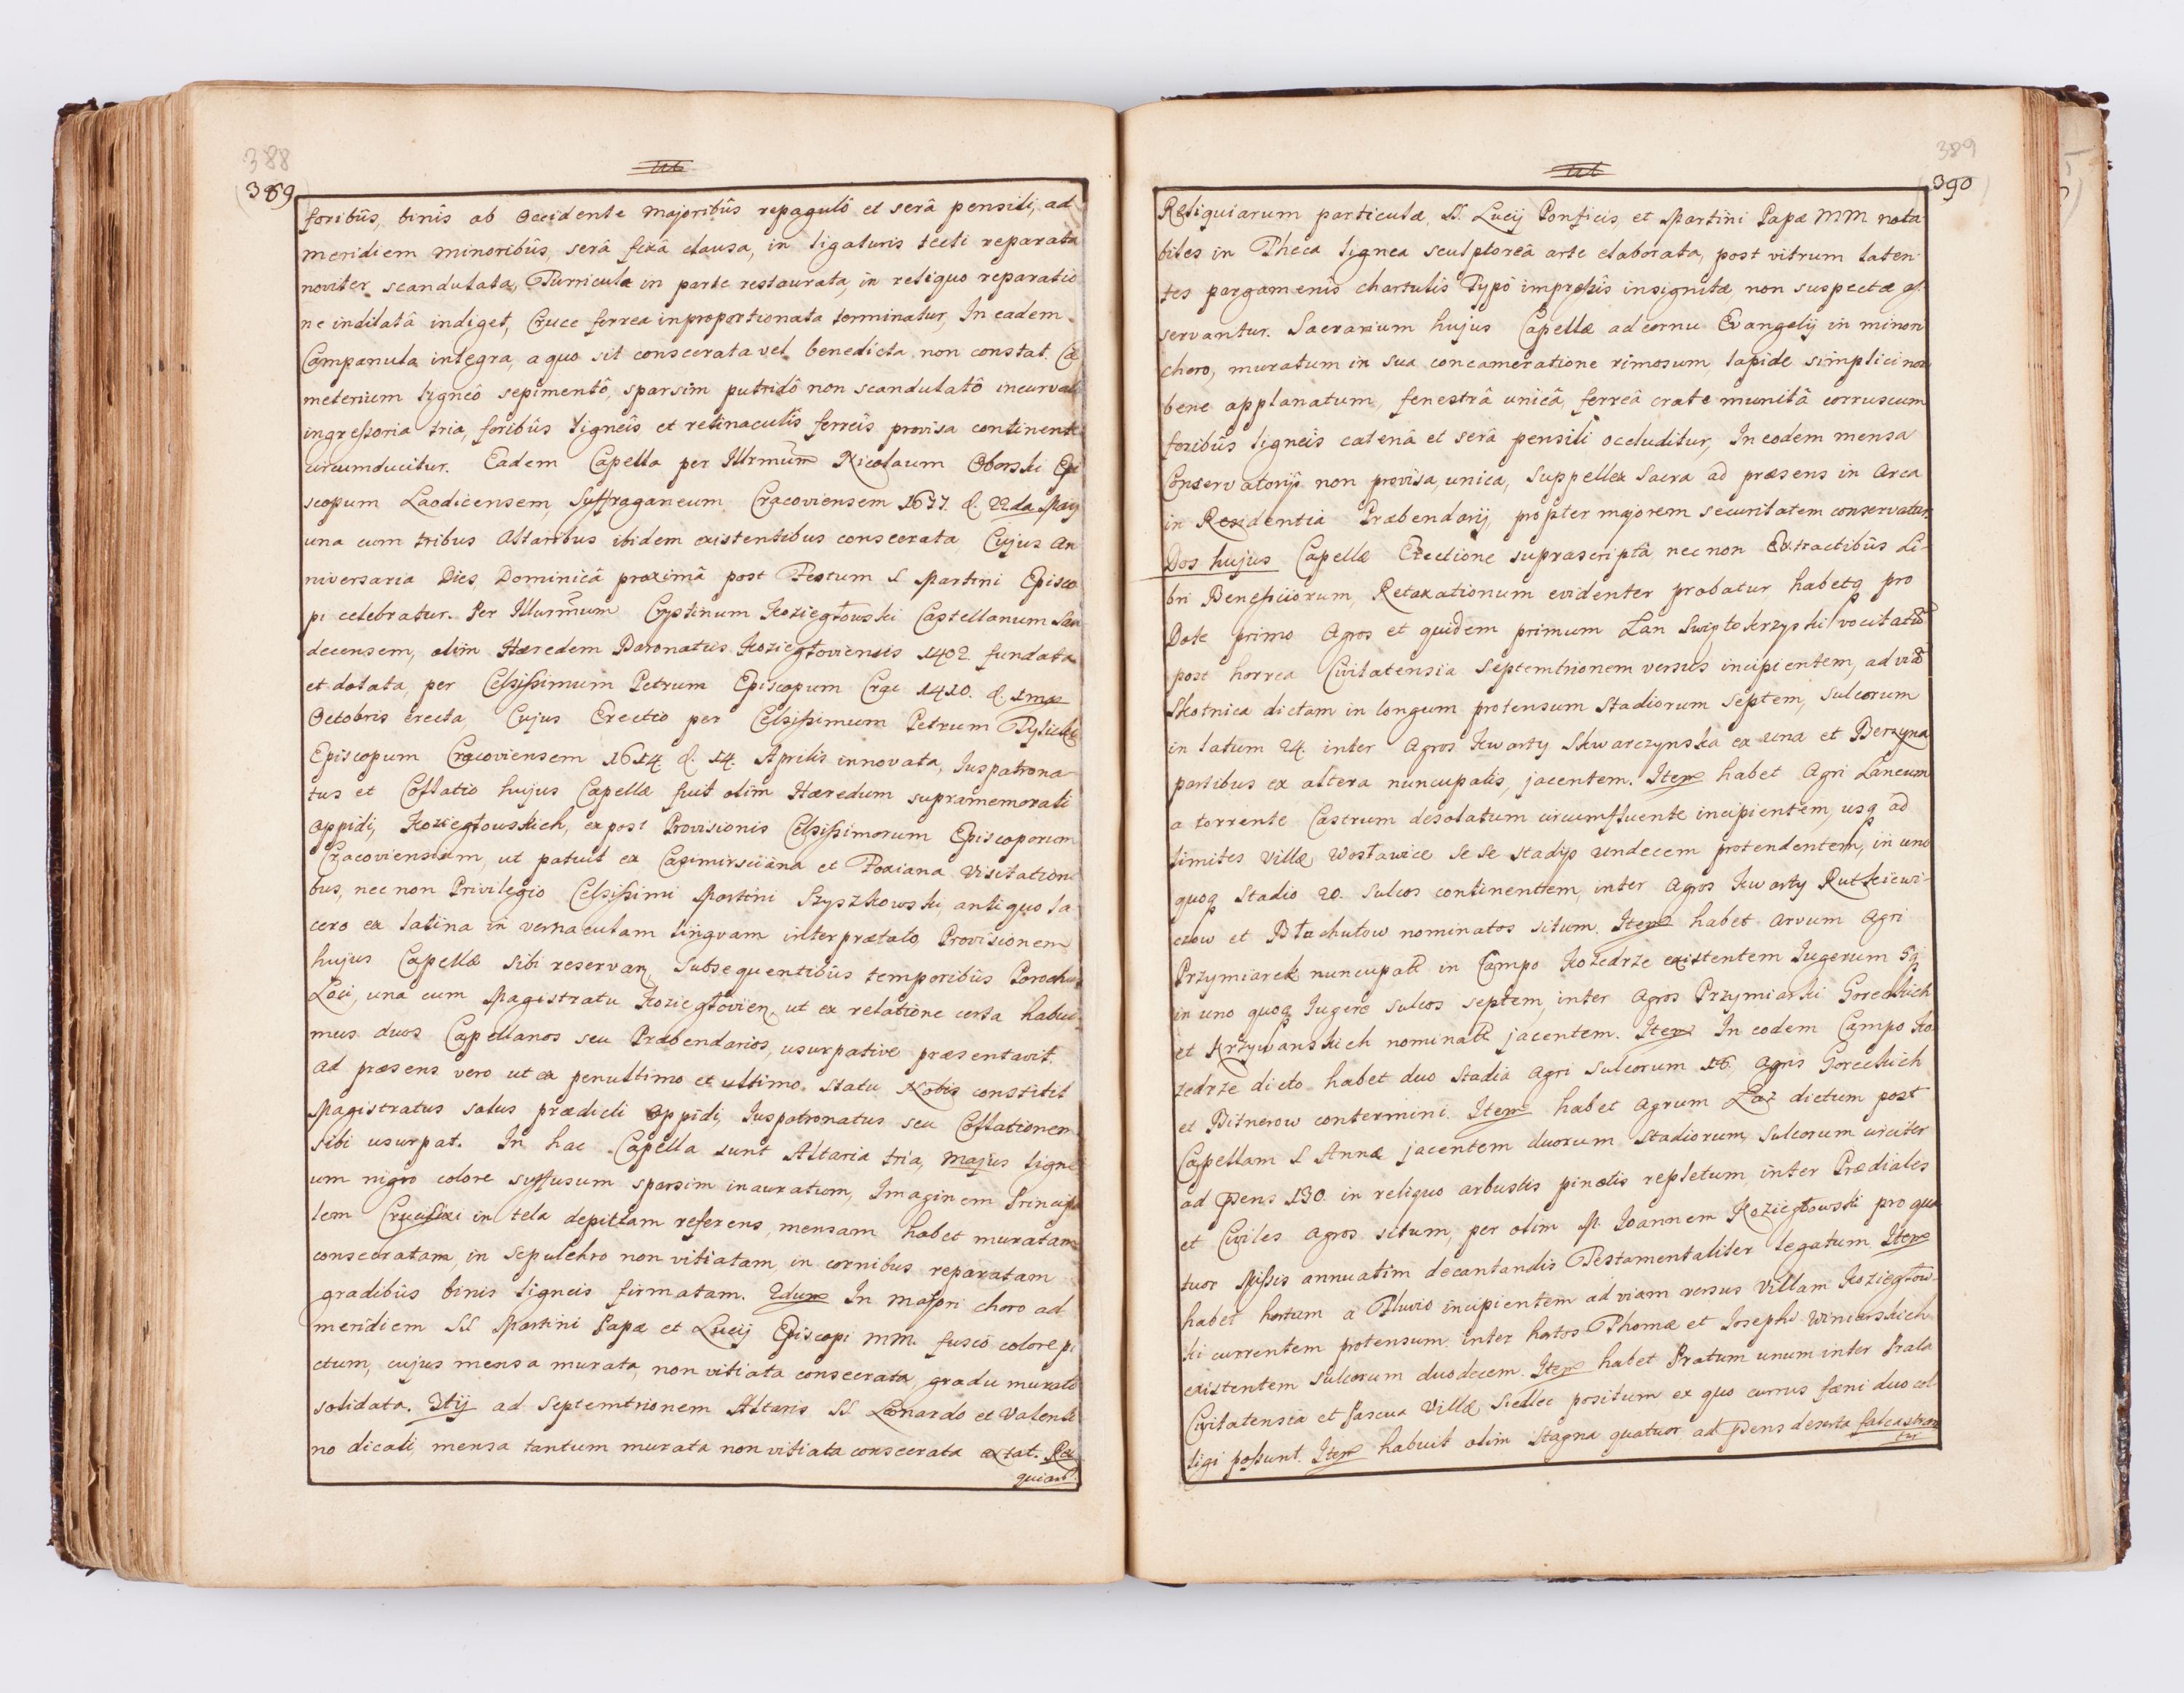 388
389
foribûs, binîs ab Occidente majoribûs repagulô et serâ pensili, ad
meridiem minoribûs, serâ fixâ clausa, in ligaturis tecti reparata
noviter scandulata, Turricula in parte restaurata, in reliquo reparatio
ne indilatâ indiget, Cruce ferrea inproportionata terminatur, In eadem
Campanula integra, a quo sit consecrata vel benedicta non constat. Cæ
meterium ligneô sepimentô, sparsim putridô non scandulatô incurvato
ingressoria tria, foribûs ligneîs et retinaculîs ferreîs provisa continente
circumducitur. Eadem Capella per Illrmum Nicolaum Oborski Epi
scopum Laodicensem, Suffraganeum Cracoviensem 1677. d. 22da May
una cum tribus Altaribus ibidem existentibus consecrata, Cujus An
niversaria Dies, Dominicâ proximâ post Festum S Martini Episco
pi celebratur. Per Illurmum Crystinum Koziegłowski Castellanum San
decensem, olim Hæredem Baronatus Koziegłoviensis 1402. fundata
et dotata, per Celsissimum Petrum Episcopum Crac 1410. d. 1ma
Octobris erecta, Cujus Erectio per Celsissimum Petrum Tylicki
Episcopum Cracoviensem 1614. d. 14. Aprilis innovata, Juspatrona
tus et Collatio hujus Capellæ fuit olim Hæredum supramemorati
Oppidi, Koziegłowskich, ex post Provisionis Celsissimorum Episcoporum
Cracoviensium, ut patuit ex Casimirsciana et Foxiana Visitationi
bus, nec non Privilegio Celsissimi Martini Szyszkowski, antiquo la
cero ex latina in vernaculam lingvam interprætato, Provisionem
hujus Capellæ sibi reservan, Subsequentibûs temporibûs Parochus
Loci, una cum Magistratu Koziegłovien, ut ex relatione certa habui
mus duos Capellanos seu Præbendarios, usurpative præsentavit.
Ad præsens vero ut ex penultimo et ultimo statu Nobis constitit
Magistratus solus prædicti Oppidi, Juspatronatus seu Collationem
sibi usurpat. In hac Capella sunt Altaria tria, Majus ligne
um nigro colore suffusum sparsim inauratum, Imaginem Principa
lem Crucifixi in tela depictam referens, mensam habet muratam
consecratam, in sepulchro non vitiatam, in cornibus reparatam
gradibûs binis ligneis firmatam. 2dum In Majori choro ad
meridiem SS Martini Papæ et Lucij Episcopi MM. fusco colore pi
ctum, cujus mensa murata, non vitiata consecrata, gradu murato
solidata. 3tij ad Septemtrionem Altaris SS Leonardo et Valenti
no dicati, mensa tantum murata non vitiata consecrata extat. Rel
quiarū
389
390
Reliquiarum particulæ, SS. Lucij Pontificis et Martini Papæ MM nota
biles in Theca lignea sculptoreâ arte elaborata, post vitrum laten
tes pargamenîs chartulis Typô impressîs insignitæ, non suspectæ as
servantur. Sacrarium hujus Capellæ ad cornu Evangelij in minori
choro, muratum in sua concameratione rimosum lapide simplici non
bene applanatum, fenestrâ unicâ, ferreâ crate munitâ corruscum
foribûs ligneîs catenâ et serâ pensili occluditur, In eodem mensa
Conservatorijs non provisa, unica, Suppellex Sacra ad præsens in Arca
in Residentia Præbendarij propter majorem securitatem conservatur.
Dos hujus Capellæ Erectione suprascriptâ nec non Extractibûs Li-
bri Beneficiorum, Retaxationum evidenter probatur, habetq pro
Dote primo Agros et quidem primum Lan Swiętokrzyski vocitatū
post horrea Civitatensia Septemtrionem versus incipientem, ad viā
Skotnica dictam in longum protensum Stadiorum Septem, Sulcorum
in latum 24. inter Agros Kwarty Skwarczynska ex una et Berzyna
partibus ex altera nuncupatis, jacentem. Item habet Agri Laneum
a torrente Castrum desolatum circumfluente incipientem, usq ad
limites Villæ Wosławice se se stadijs undecem protendentem, in uno
quoq Stadio 20. Sulcos continentem, inter Agros Kwarty Rutkiewi-
czow et Błachutow nominatos situm. Item habet Arvum Agri
Przymiarek nuncupatt in Campo Kozedrze existentem Jugerum 39
in uno quoq Jugere sulcos septem, inter Agros Przymiarki Goreckich
et Krzywanskich nominatt jacentem. Item In eodem Campo Ko
zedrze dicto habet duo Stadia Agri Sulcorum 16, Agris Goreckich
et Bitnerow contermini. Item habet Agrum Laz dictum post
Capellam S Annæ jacentem duorum Stadiorum, Sulcorum circiter
ad pens 130. in reliquo arbustis pinetis repletum, inter Prædiales
et Civiles Agros situm, per olim M. Joannem Koziegłowski pro qua
tuor Missis annuatim decantandis Testamentaliter legatum. Item
habet hortum a Fluvio incipientem ad viam versus Villam Koziegłow-
ki currentem protensum inter hortos Thomæ et Josephi Winiarskich
existentem sulcorum duodecem. Item habet Pratum unum inter Prata
Civitatensia et Pascua Villæ Siedlec positum ex quo currus fæni duo col
ligi possunt. Item habuit olim Stagna quatuor ad pens deserta falcastran
tur